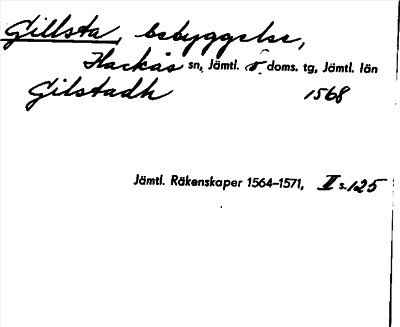 Gillsta, bebyggelse,
Hackås sn, Jämtl. v. doms. tg, Jämtl. län
Gilstadh 1568
Jämtl. Räkenskaper 1564–1571, II s. 125